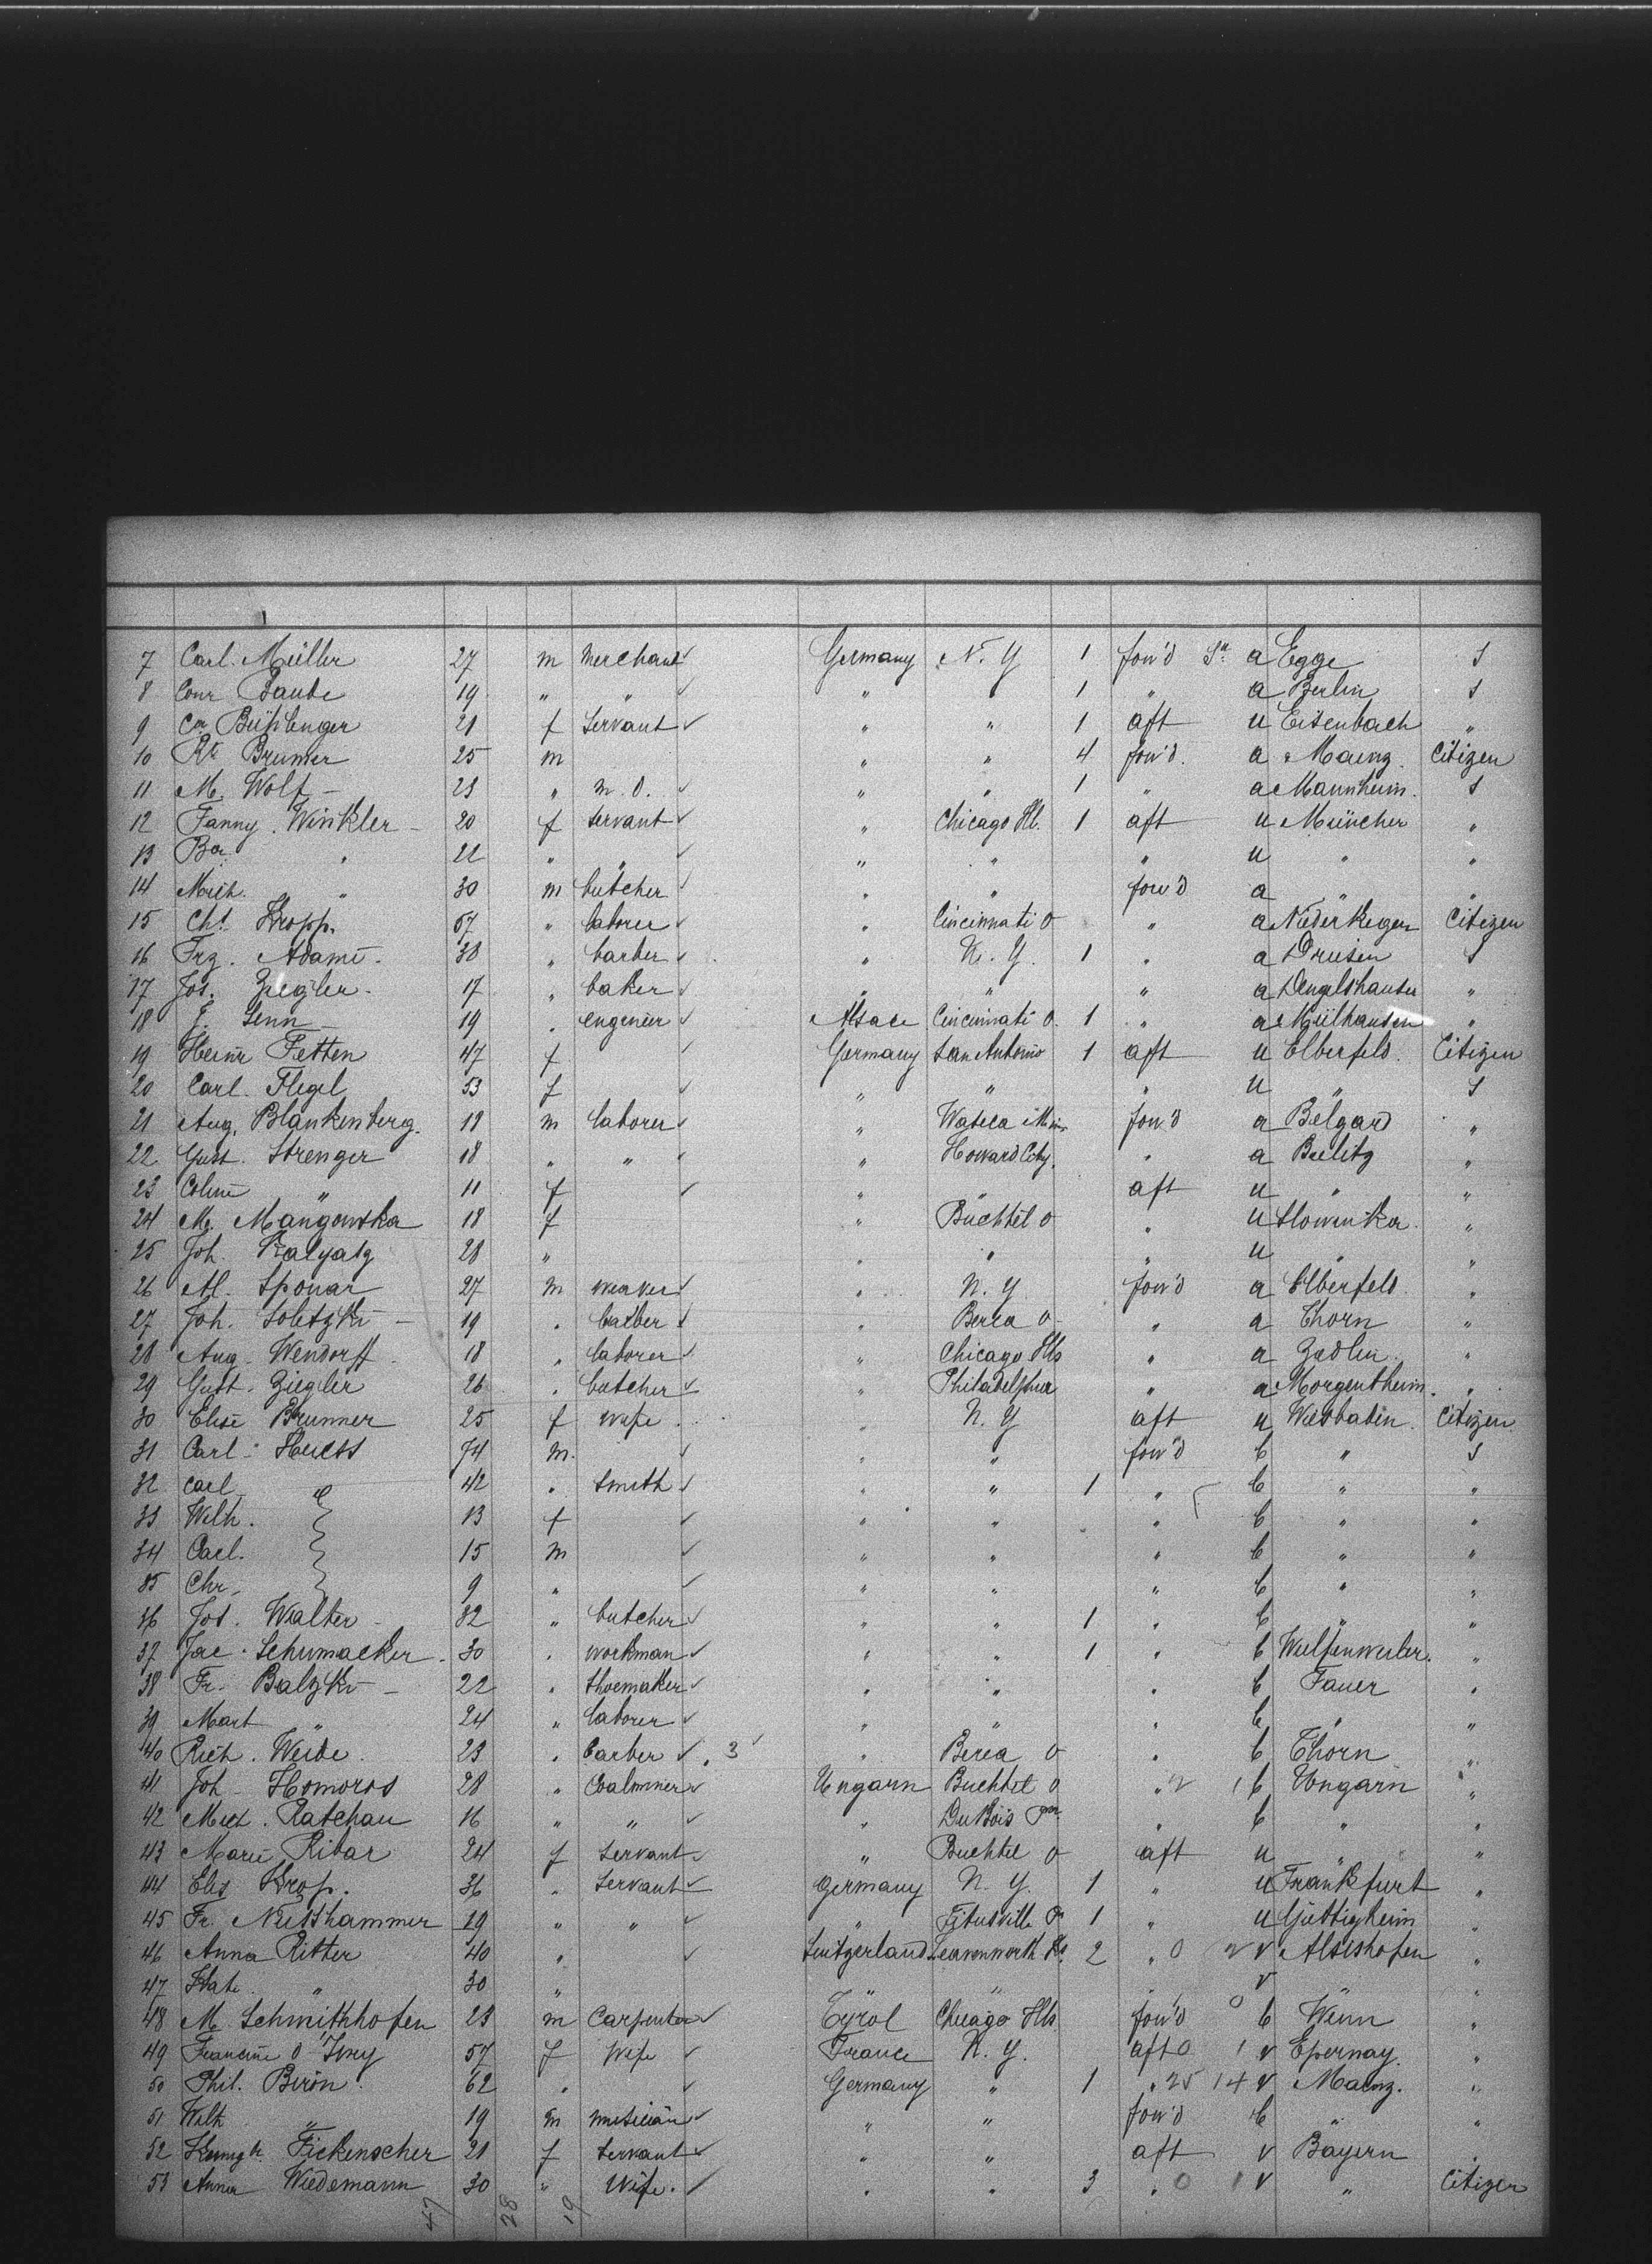 7 Carl. Müller 27 m Merchant ✓ Germany N. Y 1 fow'd Sn a Egge S
8 Conr Daube 19 " " ✓ " " 1 " a Berlin S
9 21 f Servant ✓ " " 1 aft u Eisenbach "
10 Brunner 25 m " " 4 fow'd. a Mainz. Citizen
11 M. Wolf - 23 " m. d. ✓ " " 1 " a Mannheim. S
12 Fanny. Winkler - 20 f Servant ✓ " Chicago Ills. 1 aft u München "
13 Ba " 22 " " ✓ " " " u " "
14 Mich. " 30 m butcher ✓ " " fow'd a " "
15 Chs. Kropp. 57 " laborer ✓ " Cincinnati O " a Citizen
16 Frz. Adami. 38 " barber ✓ " N. Y. 1 " a Driesen S
17 Jos. Ziegler. 17 " baker ✓ " " " a "
18 Senn - 19 " engeneer ✓ Alsace Cincinnati O. 1 " a Mülhausen "
19 Heinr Fetten 47 f ✓ Germany San Antonio 1 aft u Elberfeld. Citizen
20 Carl. Flegel 53 f ✓ " " " u " S
21 Aug. Blankenberg. 18 m laborer ✓ " Waseca Min fow'd a Belgard "
22 Gust. Strenger 18 " " ✓ " Howard City. " a Beelitz "
23 " 11 f ✓ " " aft u " "
24 M. Mangowska 18 f " Buchtel O " u "
25 Joh. 28 " " " " u " "
26 27 m weaver ✓ " N. Y. fow'd a Elberfeld. "
27 Joh. Sobetzki - 19 " barber ✓ " Berea O - " a Thorn "
28 Aug. Wendorff. 18 " laborer ✓ " Chicago Ills " a "
29 Gust. Ziegler 26 " butcher ✓ " Philadelphia " a Morgentheim. "
30 Elise Brunner 25 f wife " N. Y aft u Wiesbaden. Citizen
31 Carl. 74 m. ✓ " " fow'd b " S
32 Carl " 42 " Smith ✓ " " 1 " b " "
33 Wilh. 13 f ✓ " " " b " "
34 Carl. 15 m ✓ " " " b " "
35 Chr. 9 " ✓ " " " b " "
36 Jos. Walter - 32 " butcher ✓ " " 1 " b " "
37 Jac. Schumacker. 30 " workman ✓ " " 1 " b "
38 Fr. Balzki - 22 " shoemaker ✓ " " " b "
39 Mart " 24 " laborer ✓ " " " b " "
40 Rich. Weide. 23 " barber ✓ 3 " Berea O " b Thorn "
41 Joh - Homoros 28 " ✓ Ungarn Buchtel O " 2 1 b Ungarn "
42 Ratchau 16 " " ✓ " DuBois Pa " b " "
43 Marie Ribar 24 f Servant ✓ " Buchtel O aft u " "
44 Elis Krop. 36 " Servant Germany N. Y. 1 " u Frankfurt "
45 Fr. Nusshammer 19 " " ✓ " Titusville Pa 1 " u "
46 Anna Ritter 40 " ✓ Switzerland Leavenworth Ks. 2 " 0 2 v Altishofen "
47 Kate " 30 " " " " v " "
48 M. Schmithhofen 23 m Carpenter ✓ Tyrol Chicago Ills fow'd 0 b Wien "
49 57 f Wife ✓ France N. Y. aft 0 1 v Epernay. "
50 Phil. Biron. 62 " ✓ Germany " 1 " 25 14 v Mainz. "
51 Wilh " 19 m musician ✓ " " fow'd b " "
52 Fickenscher 21 f Servant ✓ " " aft v Bayern "
53 Anna Wiedemann 30 " Wife. ✓ " " 3 " 0 1 v " Citizen
47 28 19